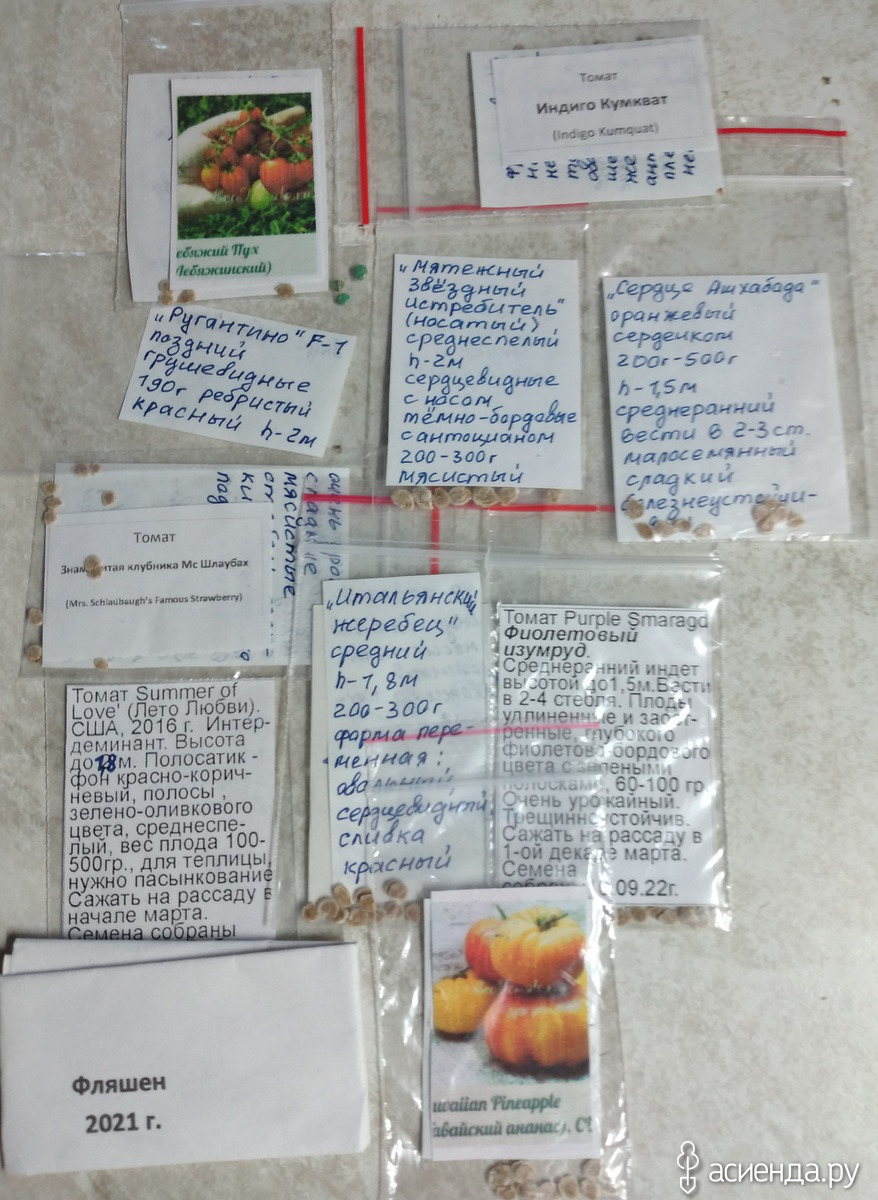 ебяжий Пух
Лебяжинский)
Томат
Индиго Кумкват
(Indigo Kumquat)
„Ругантино“ F-1
поздний
грушевидные
190г ребристый
красный h-2м
„Мятежный
Звёздный
истребитель“
(носатый)
среднеспелый
h-2м
сердцевидные
с носом
тёмно-бордовые
с антоцианом
200-300г
мясистый
„Сердце Ашхабада“
оранжевый
сердечком
200г-500г
h-1,5м
среднеранний
вести в 2-3 ст.
малосемянный
сладкий
болезнеустойчи-
мясистые
Томат
Знаменитая клубника Мс Шлаубах
(Mrs. Schlaubaugh's Famous Strawberry)
„Итальянский
жеребец“
средний
h-1,8м
200-300г
фарма пере-
менная:
овальный
сердцевидный,
сливка
красный
Томат Purple Smaragd
Фиолетовый
изумруд.
Среднеранний индет
высотой до1,5м.Вести
в 2-4 стебля. Плоды
удлиненные и заост-
ренные, глубокого
фиолетово-бордового
цвета с зелеными
полосками, 60-100 гр.
Очень урожайный.
Трещинноустойчив.
Сажать на рассаду в
1-ой декаде марта.
Семена
09.22г.
Томат Summer of
Love' (Лето Любви).
США, 2016 г. Интер-
деминант. Высота
до 1,8м. Полосатик -
фон красно-корич-
невый, полосы ,
зелено-оливкового
цвета, среднеспе-
лый, вес плода 100-
500гр., для теплицы,
нужно пасынкование
Сажать на рассаду в
начале марта.
Семена собраны
Фляшен
2021 г.
waiian Pineapple
авайский ананас, С
асиенда.ру